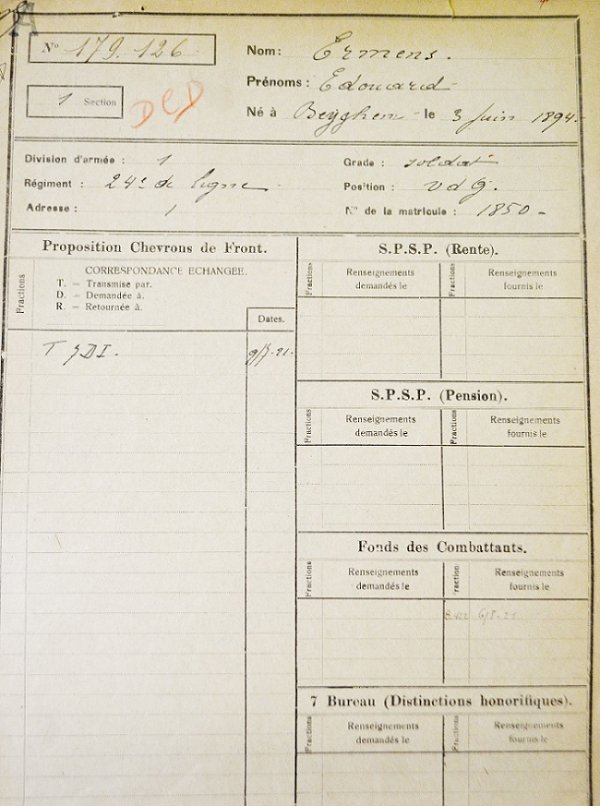 A
Nº 179.126
Nom: Ermens.
Prénoms: Edouard
1 Section
DCD
Né à Beyghem le 3 Juin 1894
Division d'armée : 1
Grade: soldat
Régiment : 24e de ligne
Position : vdg.
Adresse : 1
Nº de la matricule : 1850-
Proposition Chevrons de Front.
Fractions
CORRESPONDANCE ECHANGÉE.
T. = Transmise par.
D. = Demandée à.
R. = Retournée à.
Dates.
T 5DI.
S.P.S.P. (Rente).
Fractions
Renseignements demandés le
Fractions
Renseignements fournis le
S.P.S.P. (Pension).
Fractions
Renseignements demandés le
Fractions
Renseignements fournis le
Fonds des Combattants.
Fractions
Renseignements demandés le
Fraction
Renseignements fournis le
6/8-21
7 Bureau (Distinctions honorifiques).
Fractions
Renseignements demandés le
Fractions
Renseignements fournis le